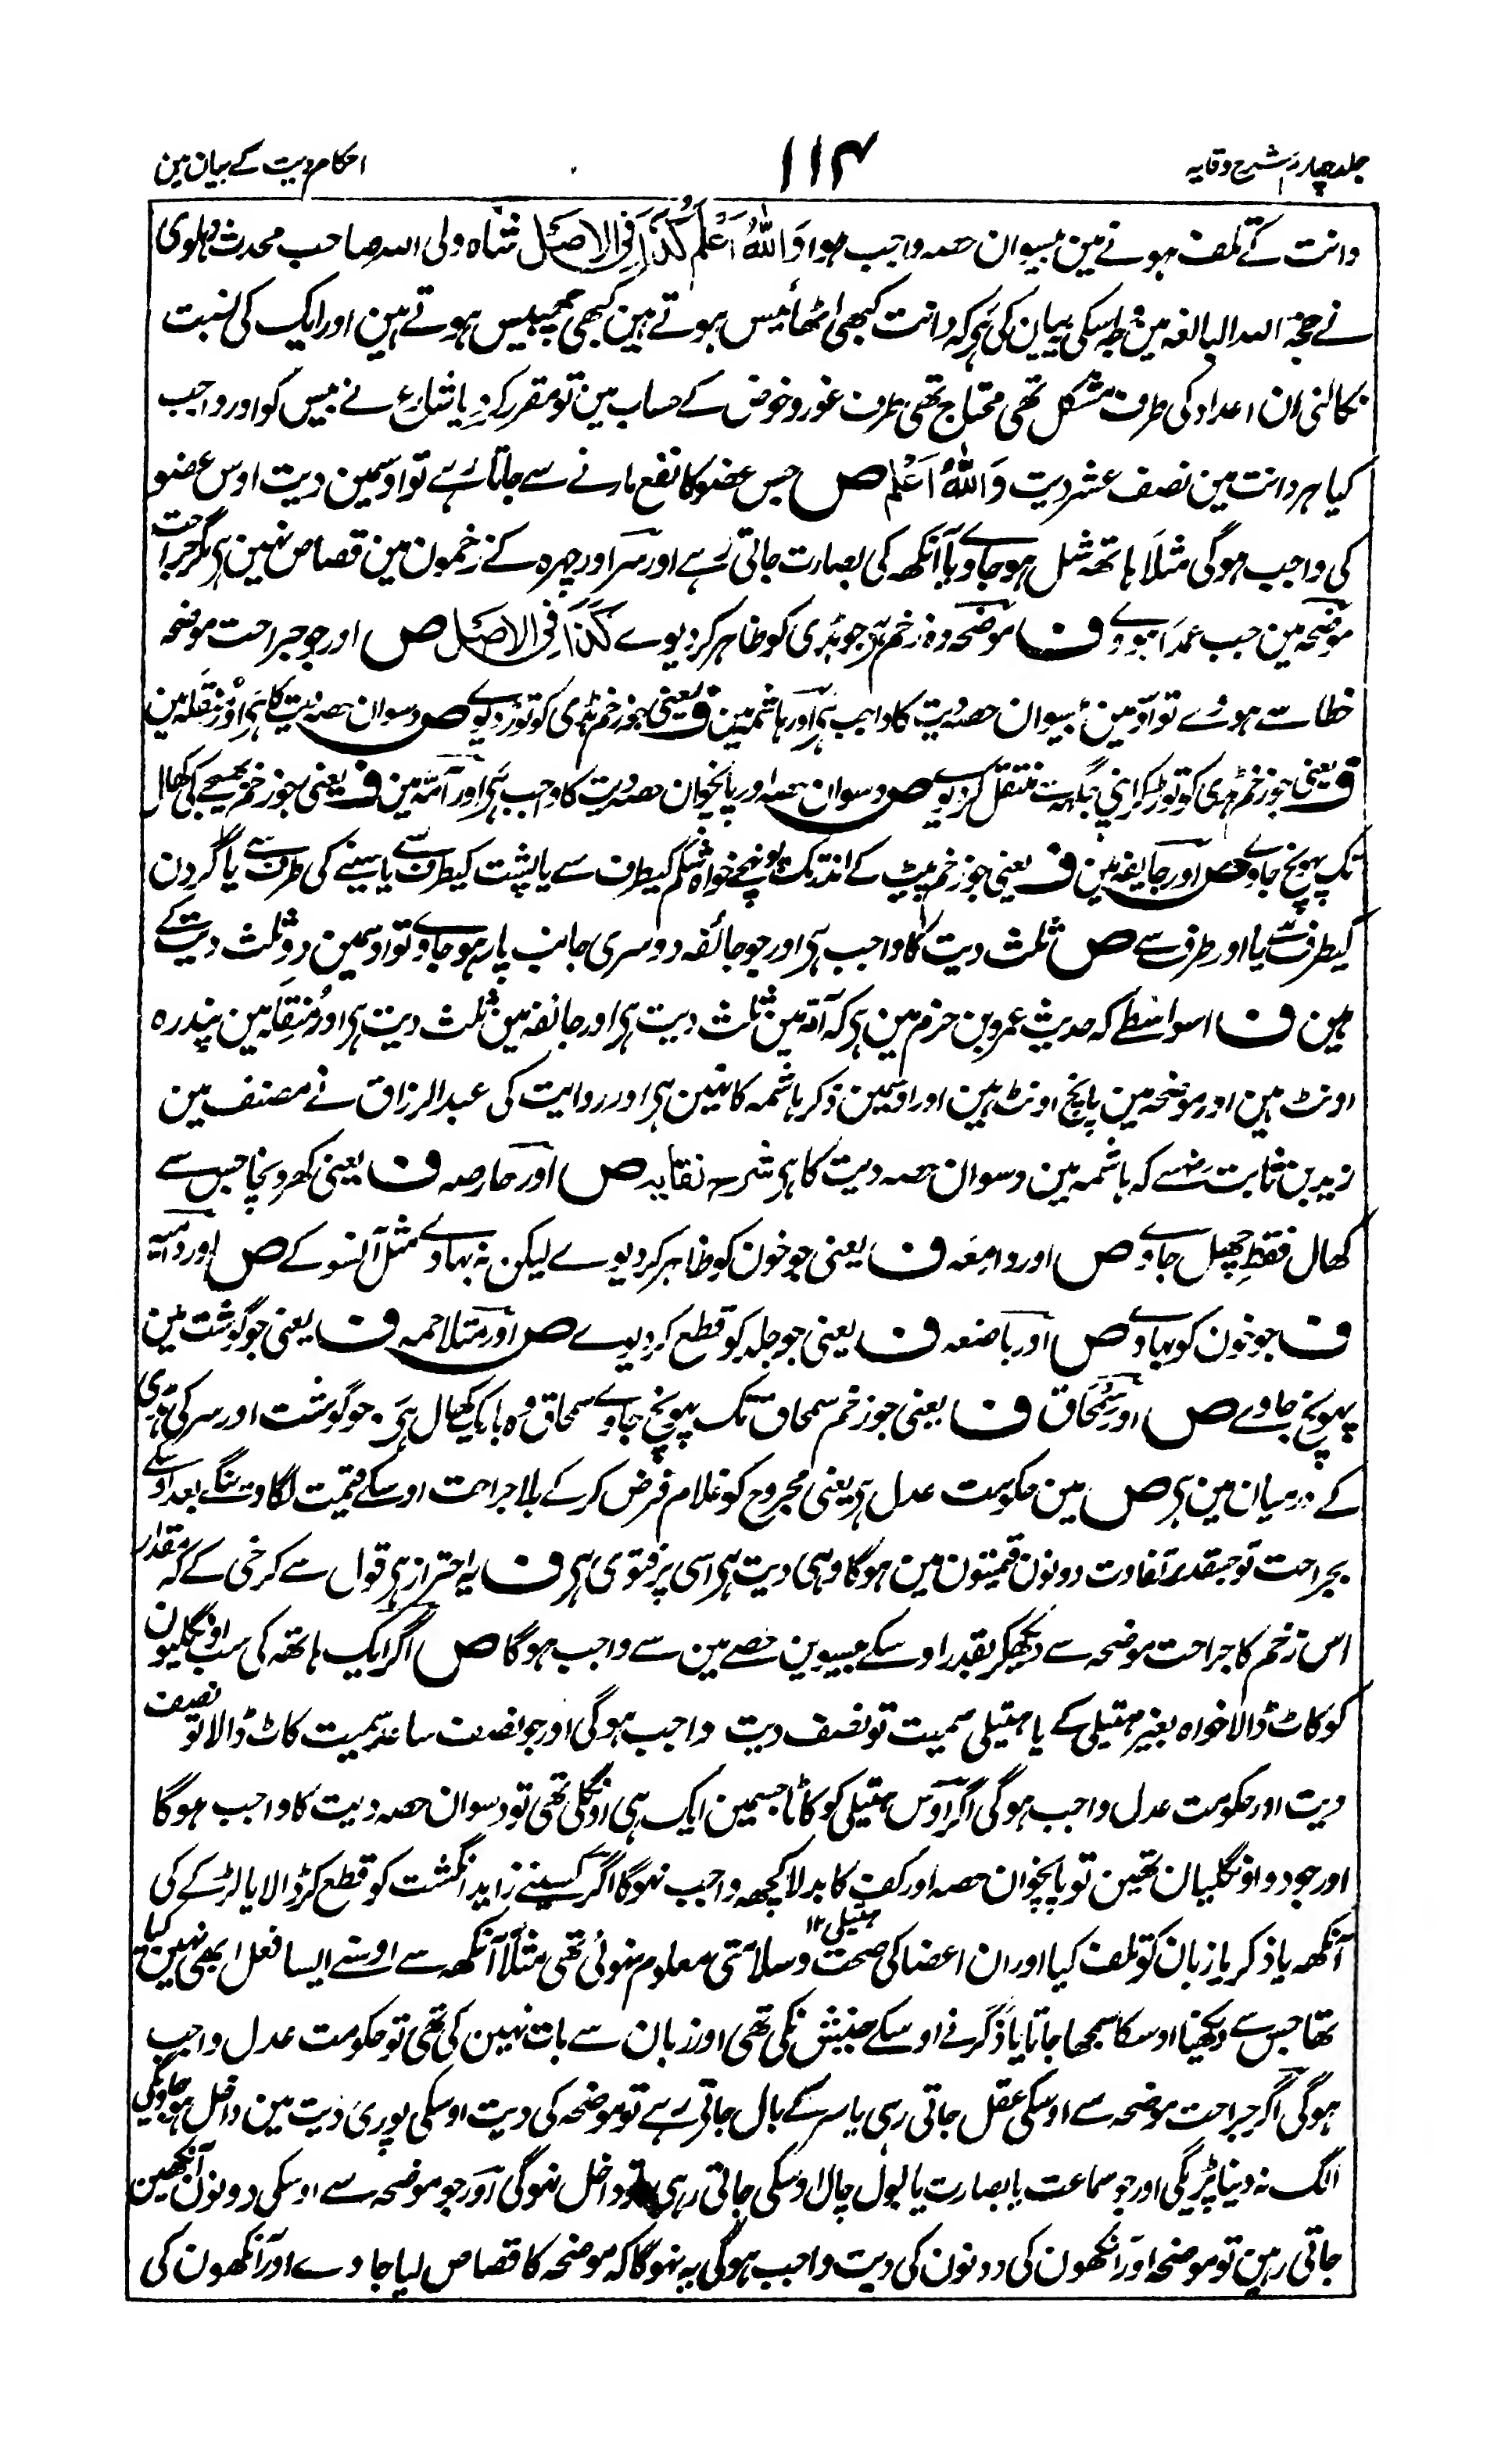 جلد چہارم شرح وقایہ
۱۱۴
احکام دیت کے بیان مین
دانت کے تلف ہونے مین بیسوان حصہ واجب ہوا وَاللّٰهُ اَعْلَمُ کَذَا فِی الاصل شاہ ولی اللہ صاحب محدث دہلوی
نے حجۃ اللہ البالغہ مین وجہ اسکی بیان کی ہی کہ دانت کبھی اٹھائیس ہوتے ہین کبھی چھبیس ہوتے ہین اور ایک کی نسبت
نکالنی ان اعداد کی طرف مشکل تھی محتاج تھی طرف غور و خوض کے حساب مین تو مقرر کر دیا شارع نے بیس کو اور واجب
کیا ہر دانت مین نصف عشر دیت وَاللّٰهُ اَعْلَم ص جس عضو کا نفع مارنے سے جاتا رہے تو اوسمین دیت اوس عضو
کی واجب ہوگی مثلاً ہاتھ شل ہو جاوے یا آنکھ کی بصارت جاتی رہے اور سر اور چہرہ کے زخمون مین قصاص نہین ہی مگر جراحت
موضحہ مین جب عمداً ہووے ف موضحہ وہ زخم ہی جو ہڈی کو ظاہر کر دیوے کَذَا فِی الاصل ص اور جو جراحت موضحہ
خطا سے ہوئے تو اوسمین بیسوان حصہ دیت کا واجب ہی اور ہاشمہ مین ف یعنی جو زخم ہڈی کو توڑ دیوے ص دسوان حصہ دیت کا ہی اور منقلہ مین
ف یعنی جو زخم ہڈی کو توڑ کر اپنی جگہ سے منتقل کر دیوے ص دسوان حصہ اور پانچوان حصہ دیت کا واجب ہی اور آمہ مین ف یعنی جو زخم بھیجے کی کھال
تک پہونچ جاوے ص اور جایفہ مین ف یعنی جو زخم پیٹ کے اندر تک پہونچے خواہ شکم کیطرف سے یا پشت کیطرف سے یا سینے کی طرف سے یا گردن
کیطرف سے یا اور طرف سے ص ثلث دیت کا واجب ہی اور جو جائفہ دوسری جانب پار ہو جاوے تو اوسمین دو ثلث دیت کے
ہین ف اسواسطے کہ حدیث عمرو بن حزم مین ہی کہ آمہ مین ثلث دیت ہی اور جائفہ مین ثلث دیت ہی اور مُنَقِلَہ مین پندرہ
اونٹ ہین اور موضحہ مین پانچ اونٹ ہین اور اوسمین ذکر ہاشمہ کا نہین ہی اور روایت کی عبدالرزاق نے مصنف مین
زید بن ثابت رض سے کہ ہاشمہ مین دسوان حصہ دیت کا ہی شرح نقایہ ص اور حارصہ ف یعنی کھرونچا جس سے
کھال فقط چھل جاوے ص اور دامعہ ف یعنی جو خون کو ظاہر کر دیوے لیکن نہ بہاوے مثل آنسو کے ص اور دامیہ
ف جو خون کو بہاوے ص اور باضعہ ف یعنی جو جلد کو قطع کر دیوے ص اور متلاحمہ ف یعنی جو گوشت مین
پہونچ جاوے ص اور سِمْحَاق ف یعنی جو زخم سمحاق تک پہونچ جاوے سمحاق وہ باریک کھال ہی جو گوشت اور سر کی ہڈی
کے درمیان مین ہی ص مین حکومت عدل ہی یعنی مجروح کو غلام فرض کر کے بلا جراحت اوسکے قیمت لگاوینگے بعد اوسکے
بجراحت تو جسقدر تفاوت دونون قیمتون مین ہوگا وہی دیت ہی اسی پر فتویٰ ہی ف یہ احتراز ہی قول سے کرخی کے کہ مقدار
اس زخم کا جراحت موضحہ سے دیکھکر بقدر اوسکے بیسوین حصے مین سے واجب ہوگا ص اگر ایک ہاتھ کی سب اونگلیون
کو کاٹ ڈالا خواہ بغیر ہتیلی کے یا ہتیلی سمیت تو نصف دیت واجب ہوگی اور جو نصف ساعد سمیت کاٹ ڈالا تو نصف
دیت اور حکومت عدل واجب ہوگی اگر اوس ہتیلی کو کاٹا جسمین ایک ہی اونگلی تھی تو دسوان حصہ دیت کا واجب ہوگا
اور جو دو اونگلیان تھین تو پانچوان حصہ اور کف کا بدلا کچھ واجب نہوگا اگر کسینے زاید انگشت کو قطع کر ڈالا یا لڑکے کی
ہتیلی ۱۲
آنکھ یا ذکر یا زبان کو تلف کیا اور ان اعضا کی صحت و سلامتی معلوم نہوئی تھی مثلاً آنکھ سے اوسنے ایسا فعل ابھی نہین کیا
تھا جس سے دیکھنا اوسکا سمجھا جاتا یا ذکر نے اوسکے جنبش نکی تھی اور زبان سے بات نہین کی تھی تو حکومت عدل واجب
ہوگی اگر جراحت موضحہ سے اوسکی عقل جاتی رہی یا سر کے بال جاتے رہے تو موضحہ کی دیت اوسکی پوری دیت مین داخل ہو جاویگی
الگ نہ دینا پڑیگی اور جو سماعت یا بصارت یا بول چال اوسکی جاتی رہی تو داخل نہوگی اور جو موضحہ سے اوسکی دونون آنکھین
جاتی رہین تو موضحہ اور آنکھون کی دونون کی دیت واجب ہوگی یہ نہوگا کہ موضحہ کا قصاص لیا جاوے اور آنکھون کی